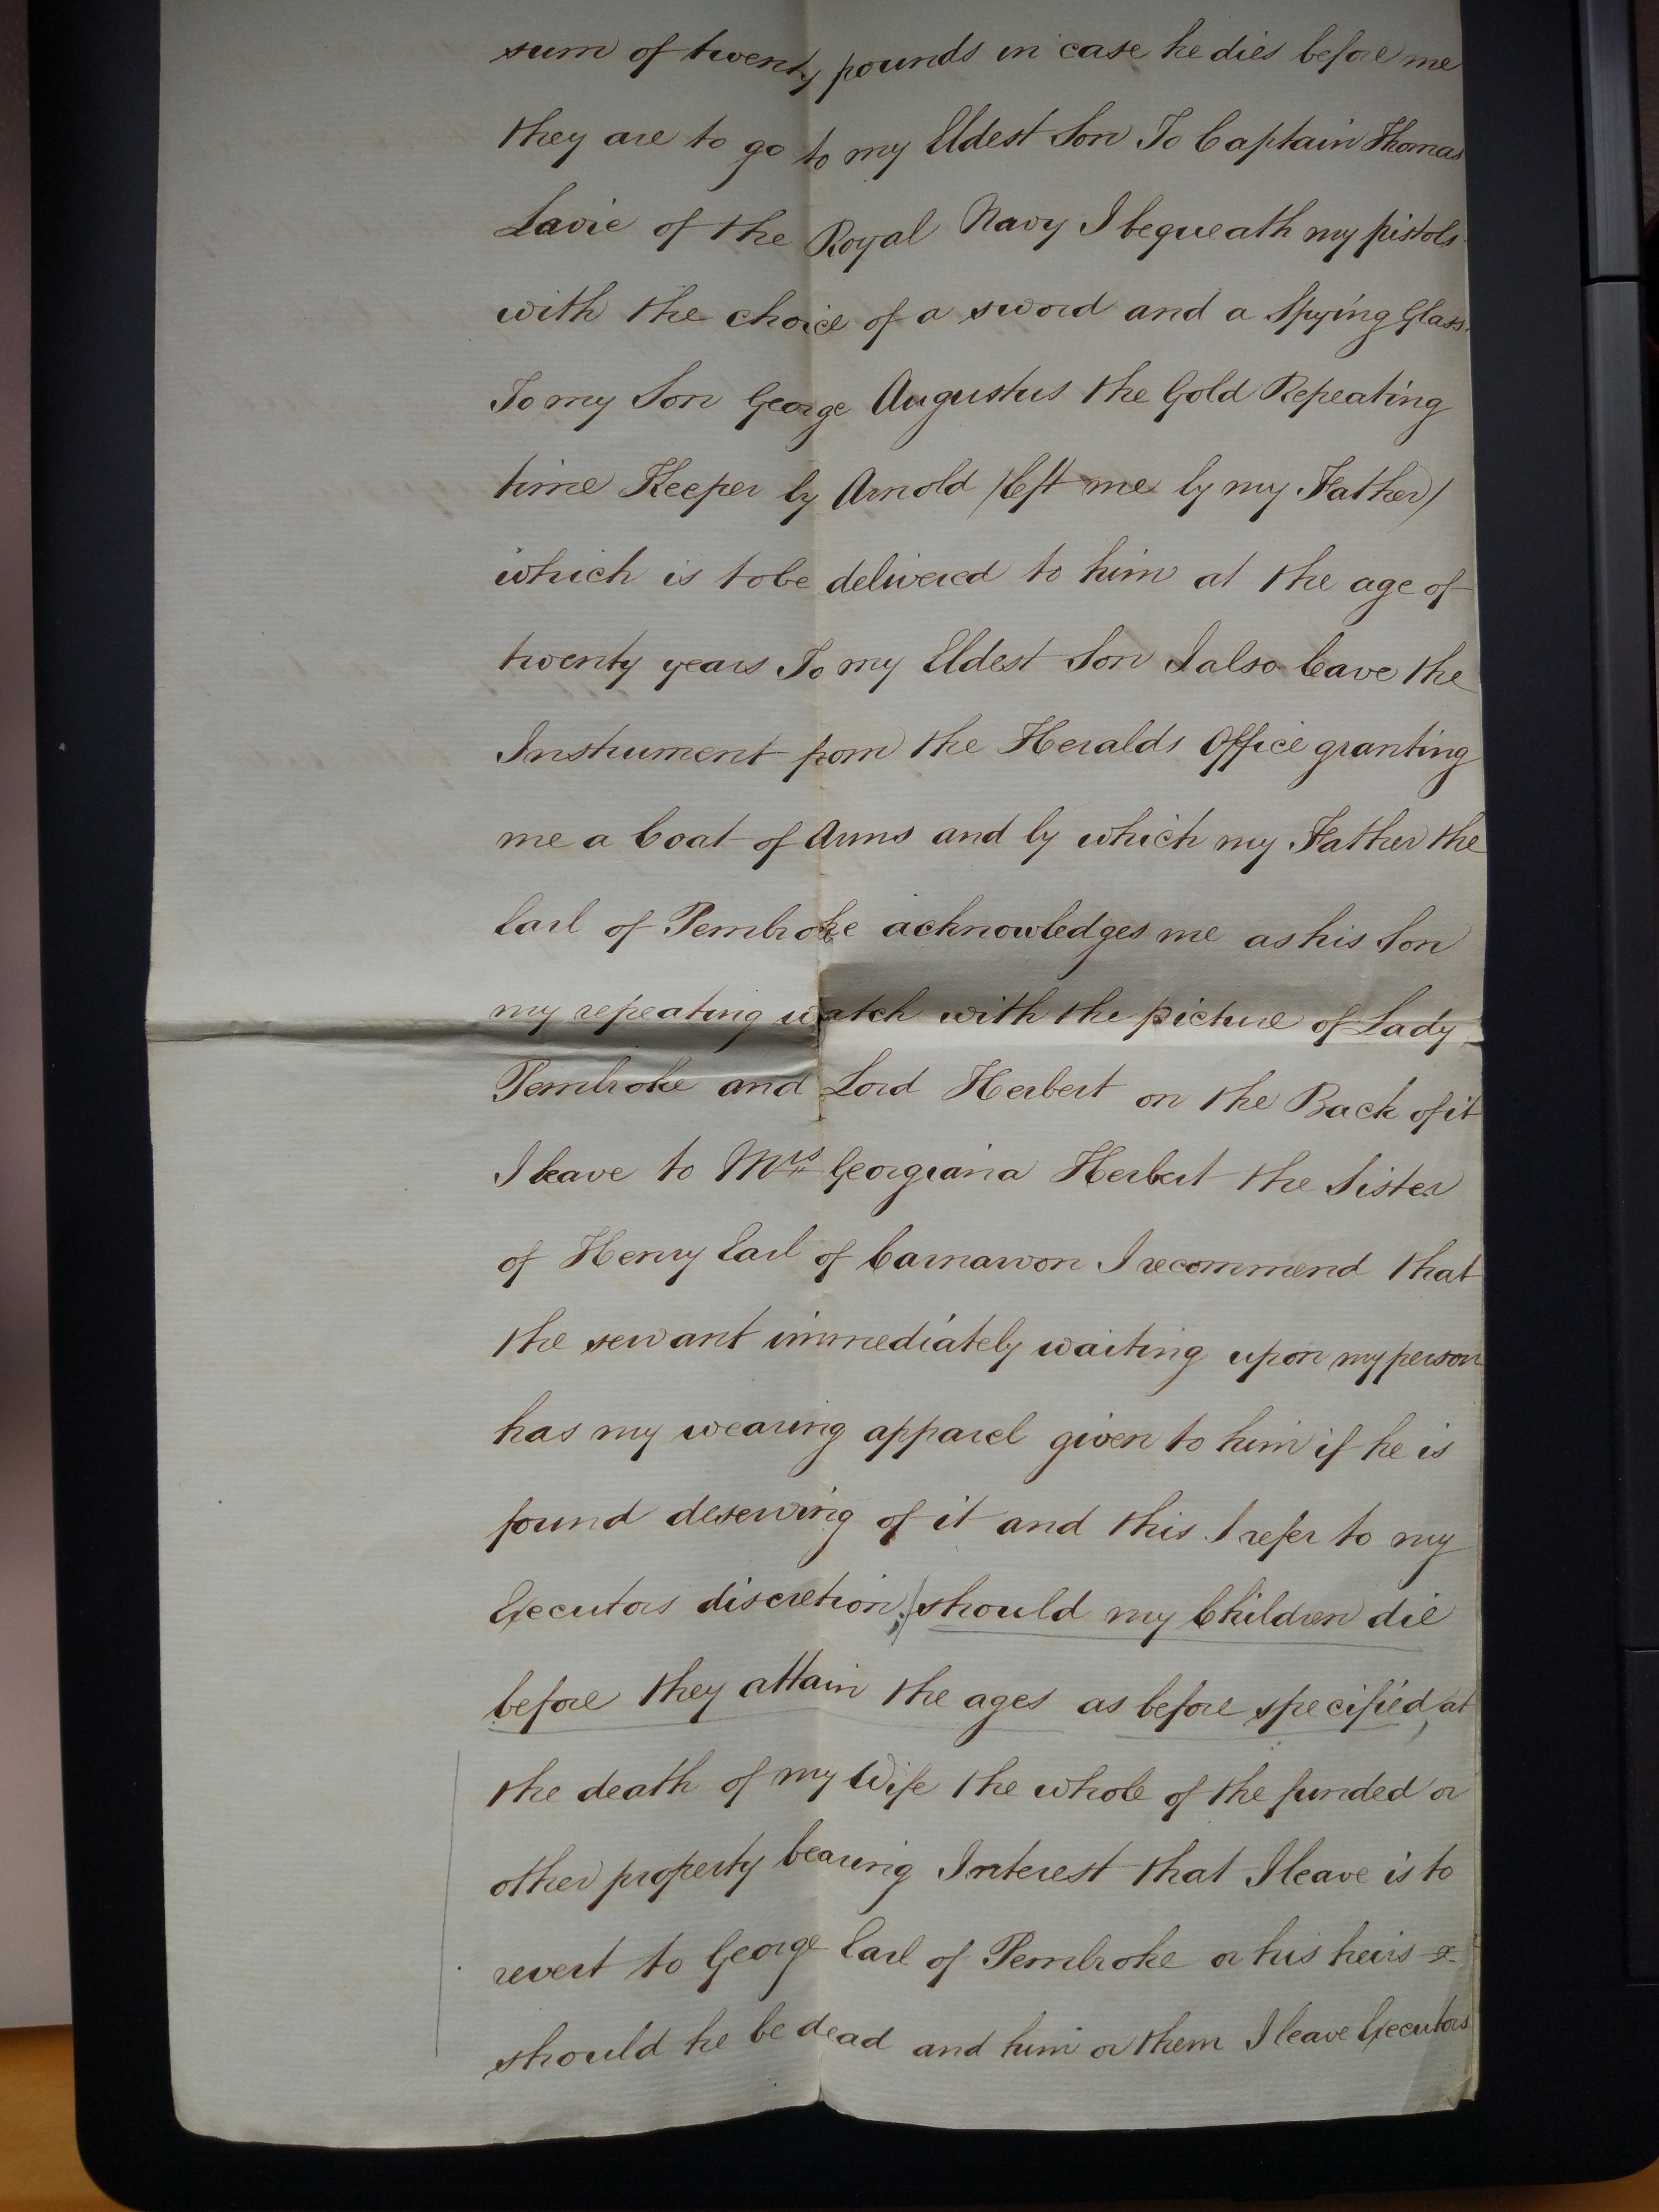 sum of twenty pounds in case he dies before me
they are to go to my Eldest Son To Captain Thomas
Lavie of the Royal Navy I bequeath my pistols
with the choice of a sword and a Spying Glass.
To my Son George Augustus the Gold Repeating
time Keeper by Arnold (left me by my Father)
which is to be delivered to him at the age of
twenty years To my Eldest Son I also leave the
Instrument from the Heralds Office granting
me a Coat of Arms and by which my Father the
Earl of Pembroke acknowledges me as his Son
my repeating watch with the picture of Lady
Pembroke and Lord Herbert on the Back of it
I leave to Mrs Georgiana Herbert the Sister
of Henry Earl of Carnarvon I recommend that
the servant immediately waiting upon my person
has my wearing apparel given to him if he is
found deserving of it and this I refer to my
Executors discretion; should my Children die
before they attain the ages as before specified, at
the death of my Wife the whole of the funded or
other property bearing Interest that I leave is to
revert to George Earl of Pembroke or his heirs
should he be dead and him or them I leave Executors